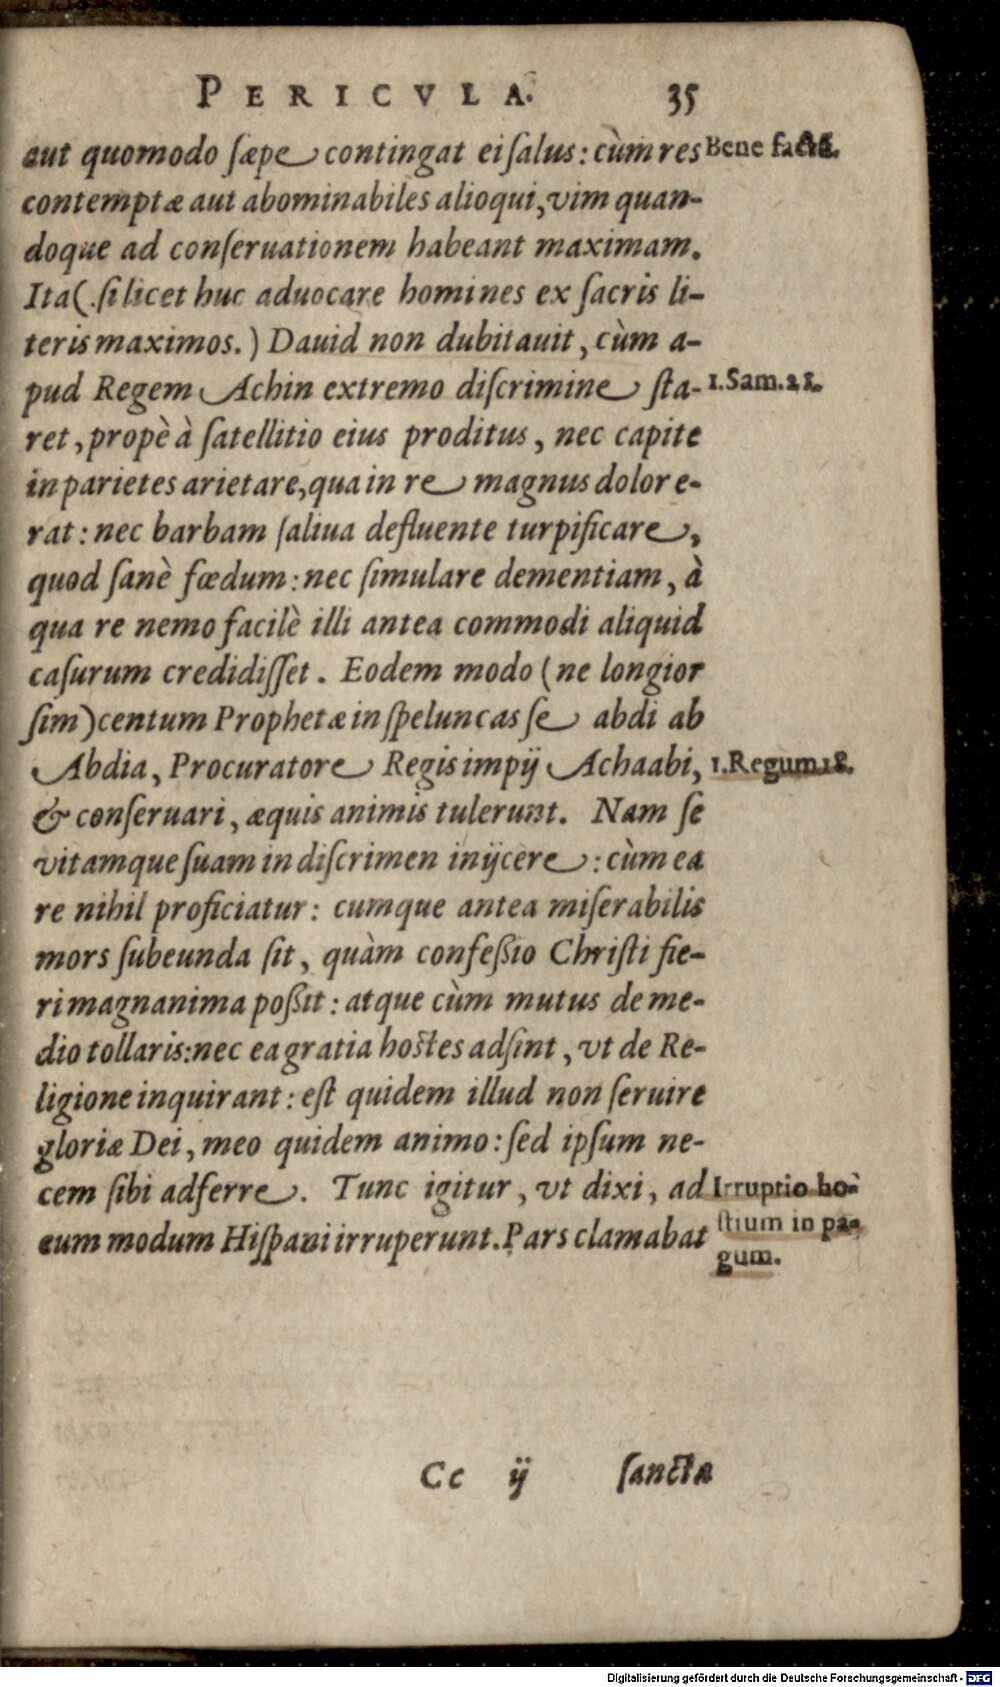 PERICVLA. 35
aut quomodo sæpe contingat ei salus: cùm res
Bene facta.
contemptæ aut abominabiles alioqui, vim quan-
doque ad conseruationem habeant maximam.
Ita (. si licet huc aduocare homines ex sacris li-
teris maximos.) Dauid non dubitauit, cùm a-
pud Regem Achin extremo discrimine sta-
1.Sam.21.
ret, propè à satellitio eius proditus, nec capite
in parietes arietare, qua in re magnus dolor e-
rat: nec barbam saliua defluente turpificare,
quod sanè fœdum: nec simulare dementiam, à
qua re nemo facilè illi antea commodi aliquid
casurum credidisset. Eodem modo (ne longior
sim) centum Prophetæ in speluncas se abdi ab
Abdia, Procuratore Regis impij Achaabi,
1.Regum 18.
& conseruari, æquis animis tulerunt. Nam se
vitamque suam in discrimen inijcere: cùm ea
re nihil proficiatur: cumque antea miserabilis
mors subeunda sit, quàm confeßio Christi fie-
ri magnanima poßit: atque cùm mutus de me-
dio tollaris: nec ea gratia hostes adsint, vt de Re-
ligione inquirant: est quidem illud non seruire
gloriæ Dei, meo quidem animo: sed ipsum ne-
cem sibi adferre. Tunc igitur, vt dixi, ad
eum modum Hispani irruperunt. Pars clamabat
Irruptio ho-
stium in pa-
gum.
Cc ij sancta
Digitalisierung gefördert durch die Deutsche Forschungsgemeinschaft - DFG